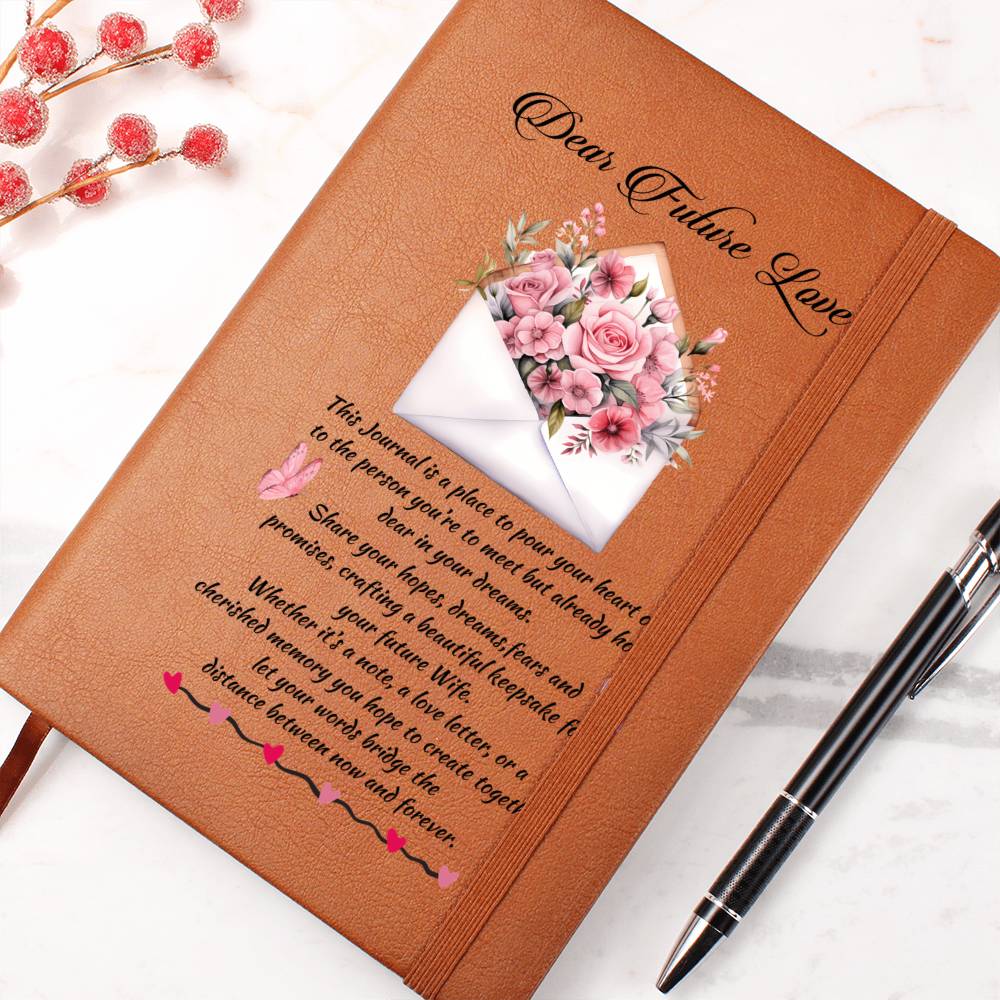 Dear Future Love
This Journal is a place to pour your heart o
to the person you're to meet but already ho
dear in your dreams.
Share your hopes, dreams,fears and
promises, crafting a beautiful keepsake f
your future Wife.
Whether it's a note, a love letter, or a
cherished memory you hope to create togeth
let your words bridge the
distance between now and forever.